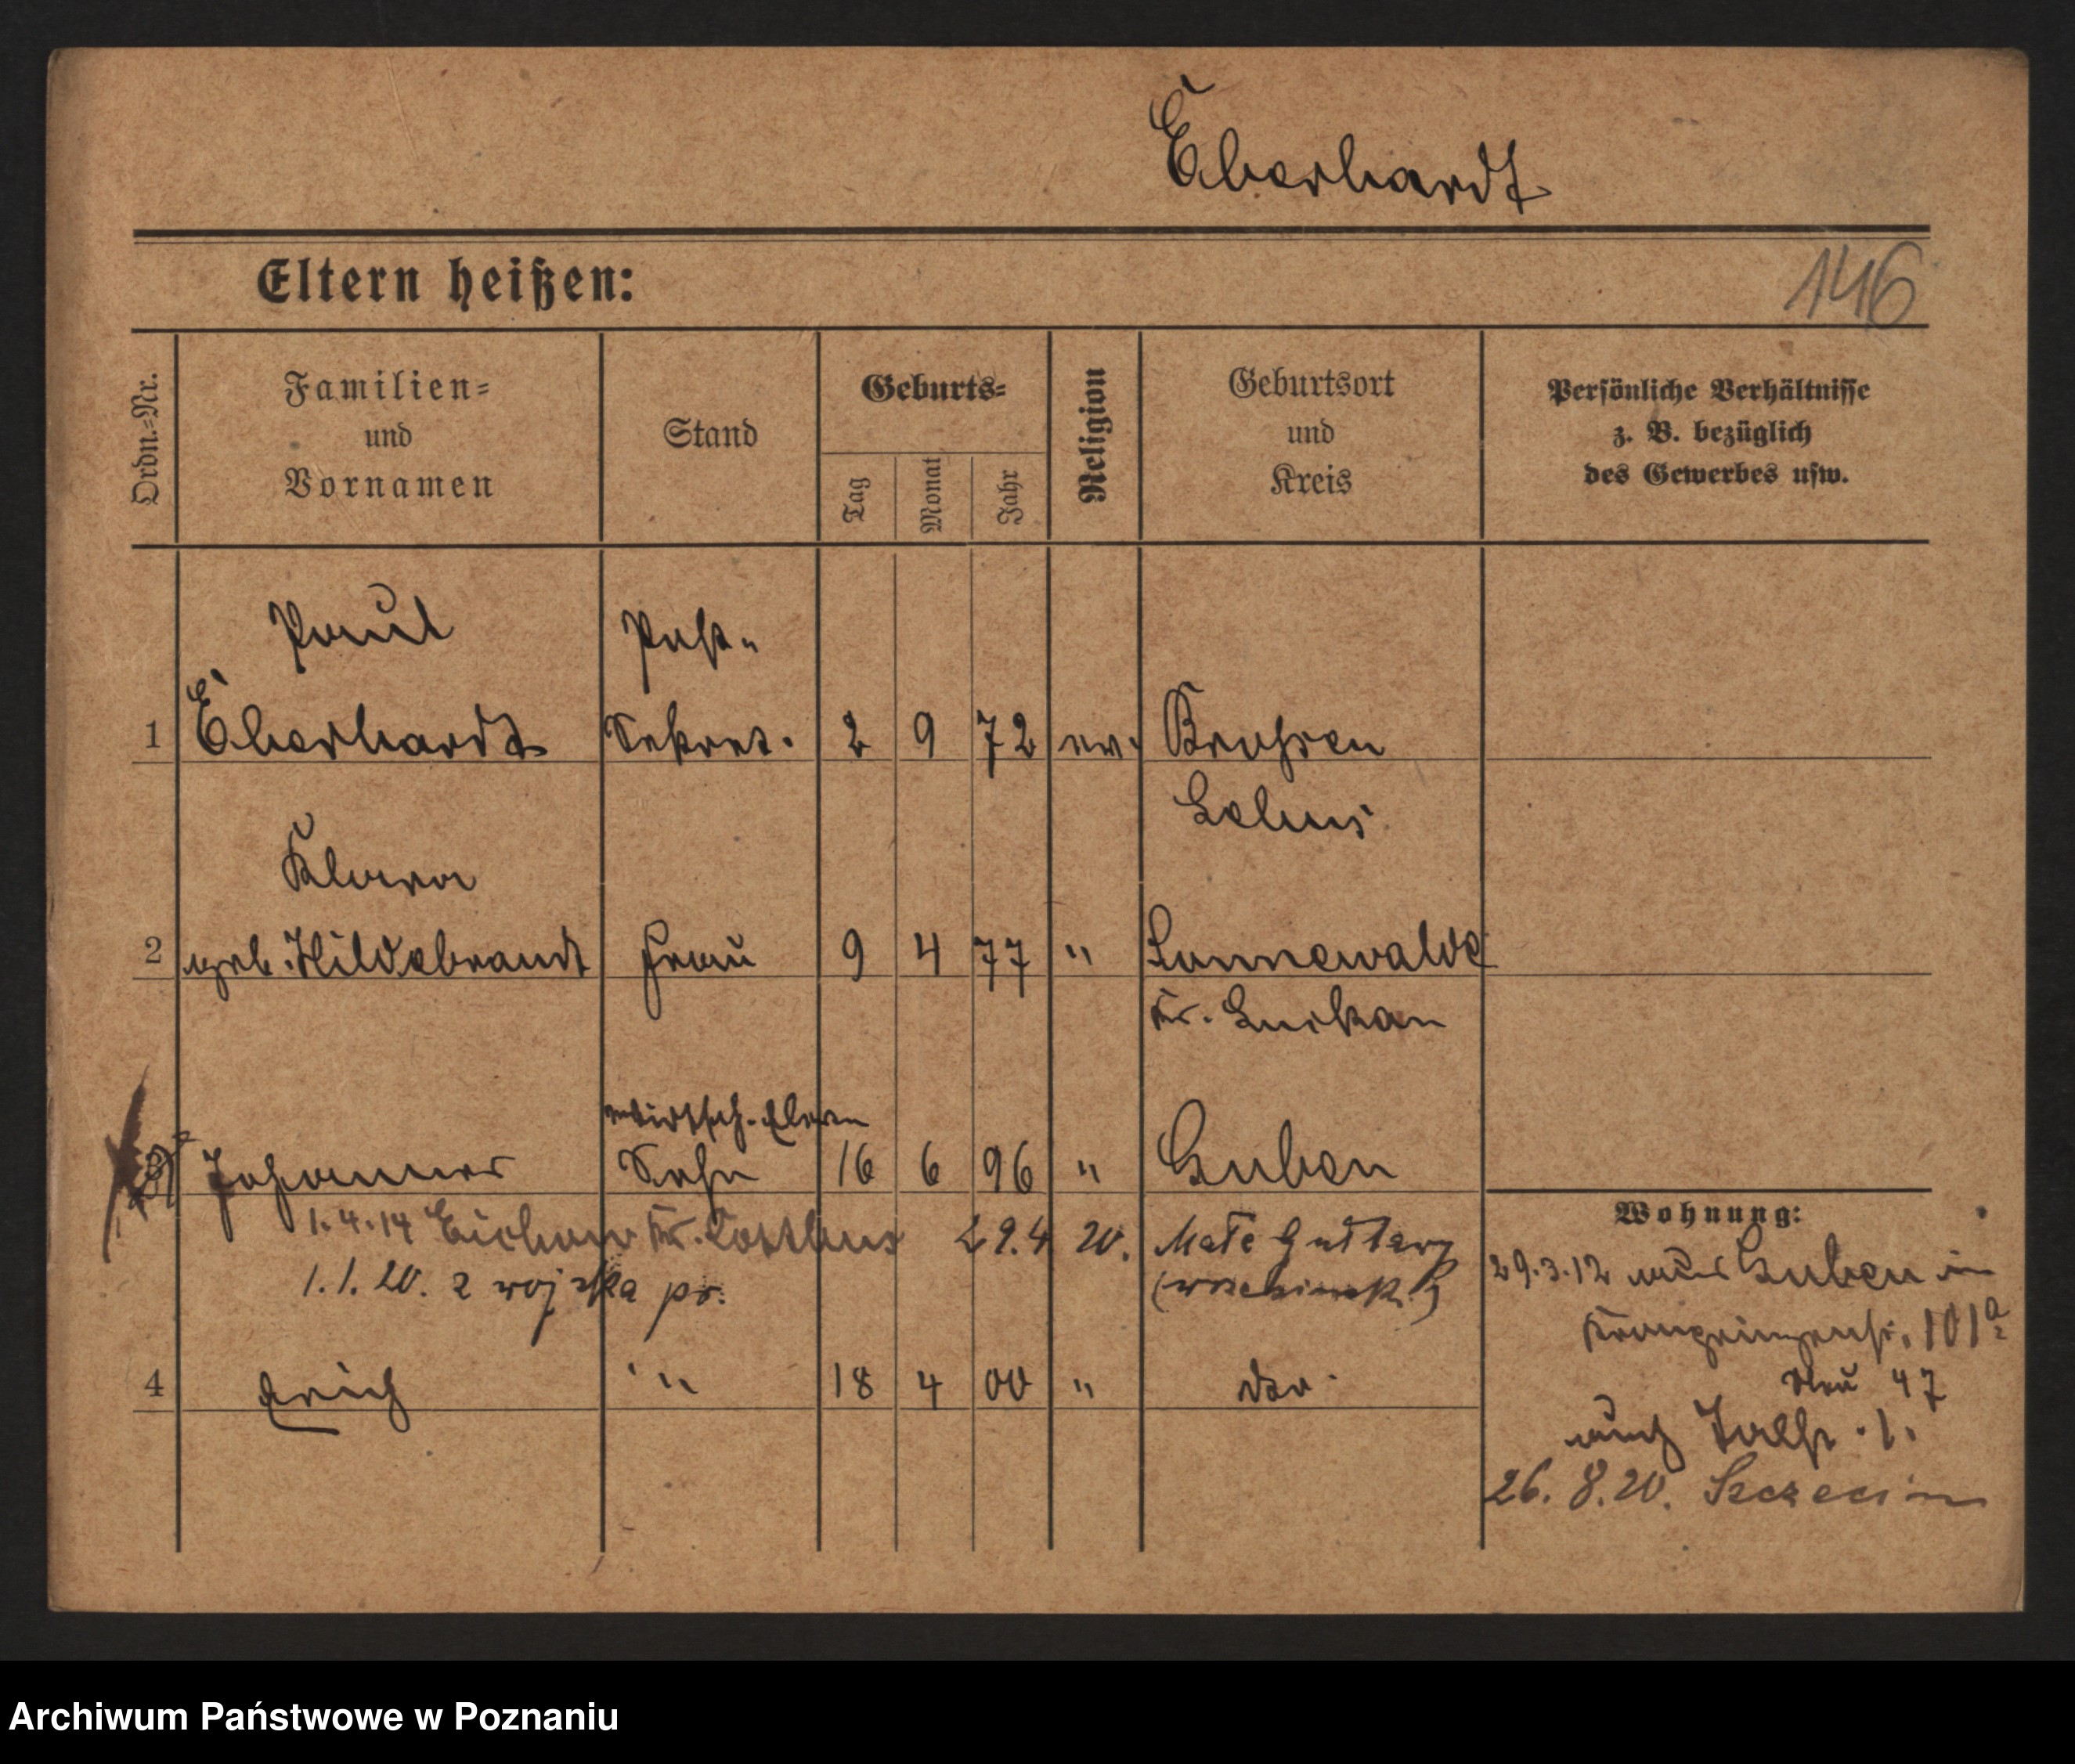 Eberhardt
Eltern heißen:
146
Ordn.=Nr.
Familien=
und
Vornamen
Stand
Geburts=
Tag
Monat
Jahr
Religion
Geburtsort
und
Kreis
Persönliche Verhältnisse
z. B. bezüglich
des Gewerbes usw.
Paul
Post-
1 Eberhardt Sekret. 2 9 72 ev. Krossen
Klara
2 geb. Hildebrandt Frau 9 4 77 " Sonnewalde
Kr. Luckau
Wirtsch. Eleven
3 Johannes Sohn 16 6 96 " Guben
1.4.14 Eichow Kr. Cottbus 29.4 20. Małe
1.1.20. z wojska pr.
4 Erich " 18 4 00 " do.
Wohnung:
29.3.12 aus Guben in
Kronprinzenstr. 101a
Neu 47
auch Talstr. 1.
26. 8. 20. Szczecin
Archiwum Państwowe w Poznaniu